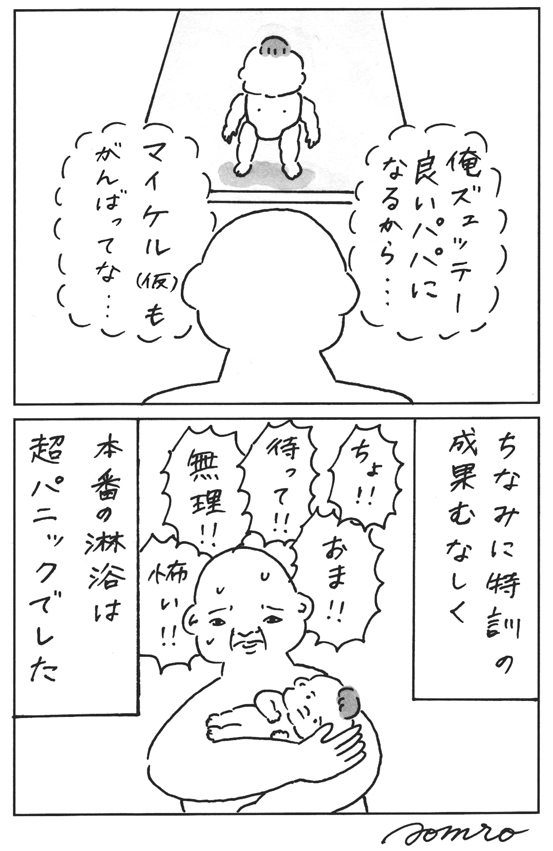 俺ズェッテー
良いパパに
なるから…
マイケル(仮)も
がんばってな…
ちなみに特訓の
成果むなしく
ちょ!!
待って!!
無理!!
おま!!
怖い!!
本番の淋浴は
超パニックでした